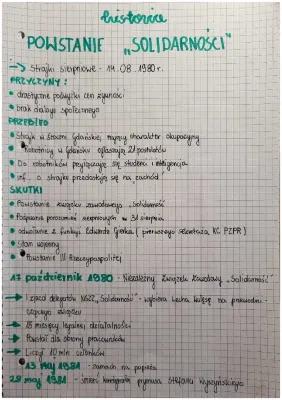 historia
POWSTANIE „SOLIDARNOŚCI"
→ Strajki sierpniowe - 14.08.1980r.
PRZYCZYNY:
• drastyczne podwyżki cen żywności
• brak dialogu społecznego
PRZEBIEG
• Strajk w Stoczni Gdańskiej mający charakter okupacyjny
• Robotnicy w Gdańsku ogłaszają 21 postulatów
• Do robotników przyłączają się studenci i inteligencja
• inf. o strajku przedostają się na „zachód"
SKUTKI
• Powstanie związku zawodowego „Solidarność"
• Podpisane porozumień sierpniowych w 31 sierpnia
• odwołanie z funkcji Edwarda Gierka (pierwszego sekretarza KC PZPR)
• Stan wojenny
• Powstanie III Rzeczypospolitej
17 październik 1980 - Niezależny Związek Zawodowy „Solidarność"
→ I zjazd delegatów NSZZ „Solidarność" - wybiera Lecha Wałęsę na przewodni-
czącego związku
→ 15 miesięcy legalnej działalności
→ Powstał dla obrony pracowników
→ Liczył 10 mln członków
13 maj 1981 - zamach na papieża
28 maj 1981 - śmierć kardynała prymasa Stefana Wyszyńskiego